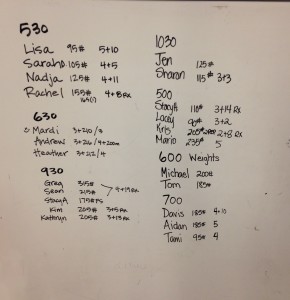 530
Lisa 95# 5+10
Sarah 105# 4+5
Nadja 125# 4+11
Rachel 155# 4+8 Rx
165(1)
630
Mardi 3+210/3
Andrew 3+216/4+200m
Heather 3+212/4
930
Greg 315#
Sean 215# 4+13 Rx
Stacy A 175# PS
Kim 205# 3+5 Rx
Kathryn 205# 3+13 Rx
1030
Jen 125#
Sharon 115# 3+3
500
Stacy A 110# 3+14 Rx
Lacey 90# 3+2
Kris 2+8 Rx
Mario 235# 5
600 Weights
Michael 200#
Tom 185#
700
Davis 185# 4+10
Aidan 185# 5
Tami 95# 4